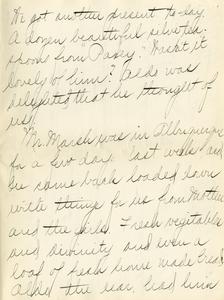 We got another present to-day.
A dozen beautiful silver tea-
spoons from "Pasey". Wasn't it
lovely of him? Aldo was
delighted that he thought of
us!
Mr. Marsh was in Albuquerque
for a few days last week and
he came back loaded down
with things for us from Mother
and the girls. Fresh vegetables
and divinity and even a
loaf of fresh home made bread.
the dear, had